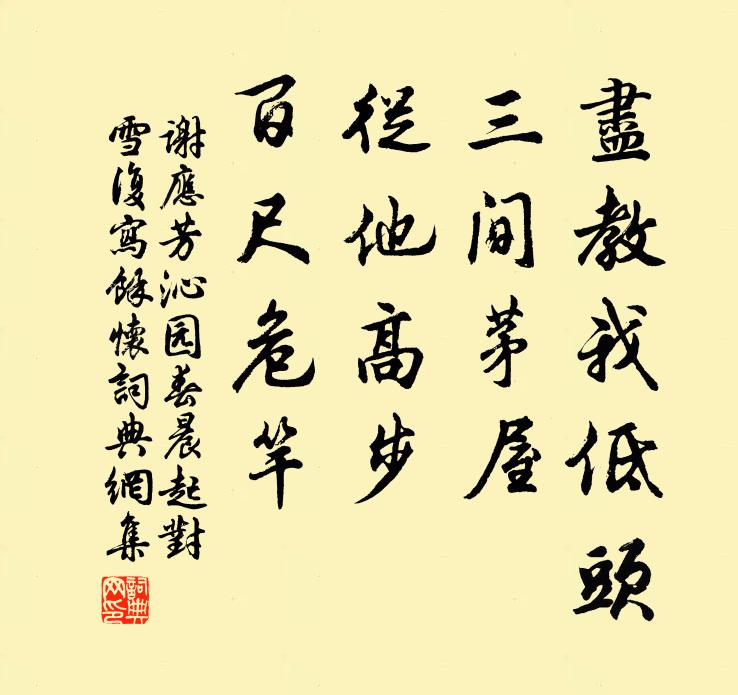 盡教我低頭
三間茅屋
從他高步
百尺危竿
谢應芳沁园春晨起對
雪復寫餘懷詞典網集
詞典网印